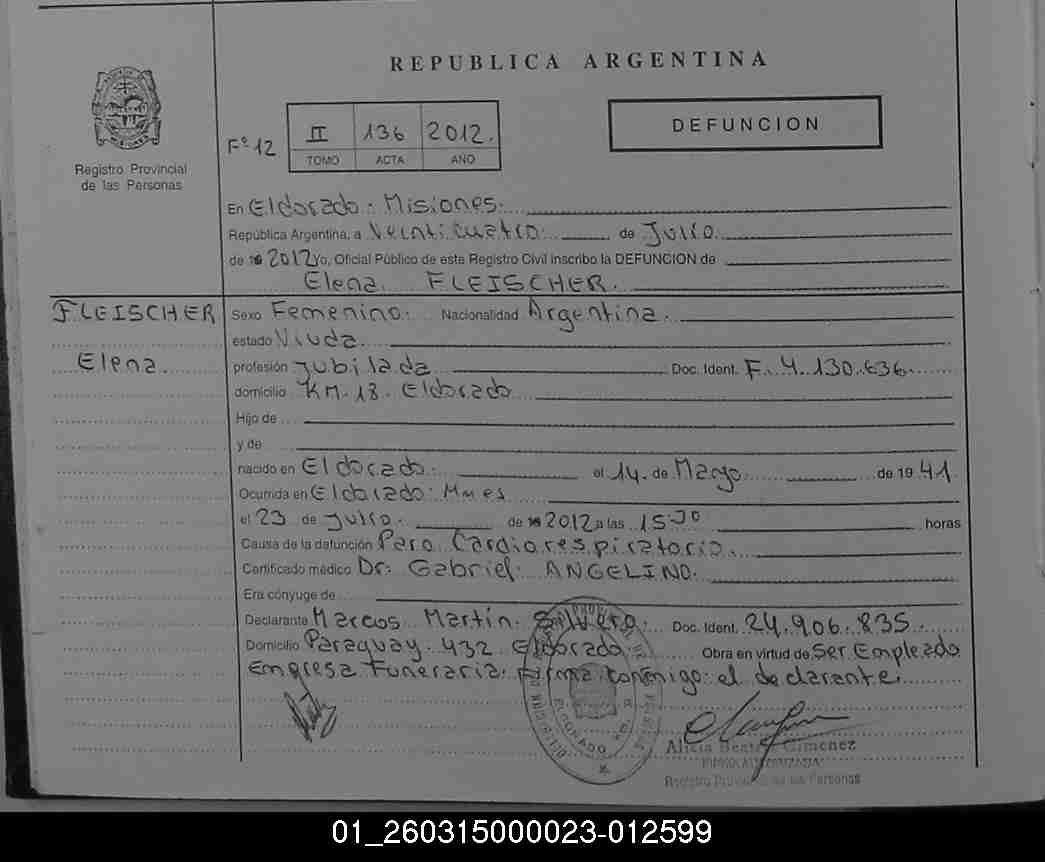 REPUBLICA ARGENTINA
Registro Provincial
de las Personas
Fº 12
II 136 2012.
TOMO ACTA AÑO
DEFUNCION
En Eldorado. Misiones.
República Argentina, a Veinticuatro de Julio
de 19 2012 Yo, Oficial Público de este Registro Civil inscribo la DEFUNCION de
Elena. FLEISCHER.
FLEISCHER
Elena.
Sexo Femenino. Nacionalidad Argentina.
estado Viuda.
profesión Jubilada Doc. Ident. F. 4.130.636.
domicilio KM. 18. Eldorado
Hijo de
y de
nacido en Eldorado. el 14. de Marzo de 19 41.
Ocurrida en Eldorado. Mnes
el 23 de Julio. de 19 2012 a las 15 horas
Causa de la defunción Paro Cardiorespiratorio.
Certificado médico Dr: Gabriel. ANGELINO.
Era cónyuge de
Declarante Marcos Martín. Doc. Ident. 24.906.835.
Domicilio Paraguay. 432 Eldorado. Obra en virtud de Ser Empleado
Empresa Funeraria. Firma conmigo: el declarante.
ELDORADO
Alicia Beatriz Gimenez
Registro Provincial de las Personas
01_260315000023-012599